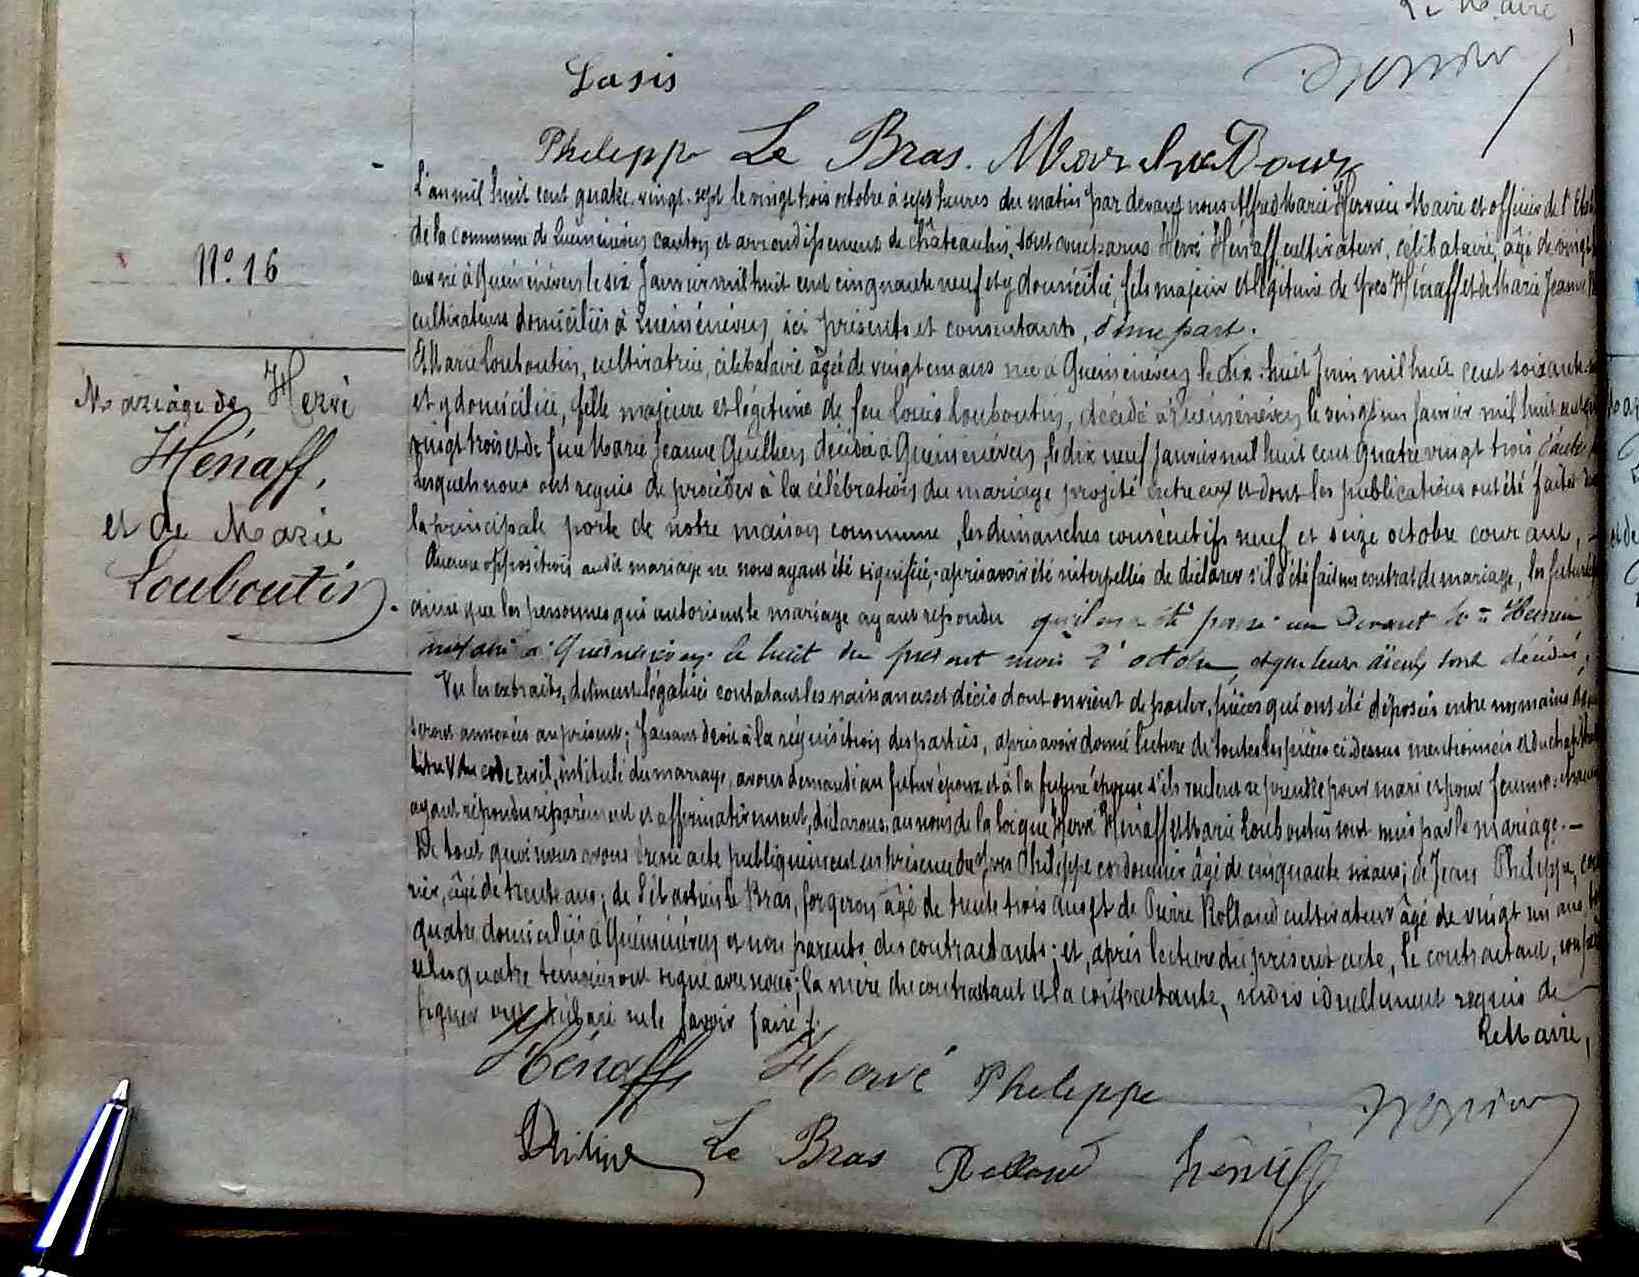 Le Maire
Lasis
Philippe Le Bras. Marche Dour
L'an mil huit cent quatre-vingt-sept le vingt trois octobre à sept heures du matin par devant nous Alfred Marie Hervieu Maire et officier de l'Etat
de la commune de Quéménéven canton et arrondissement de Châteaulin, sont comparus Hervé Hénaff cultivateur, célibataire, âgé de vingt
ans né à Quéménéven le six Janvier mil huit cent cinquante neuf et y domicilié, fils majeur et légitime de Yves Hénaff et de Marie Jeanne
cultivateurs domiciliés à Quéménéven, ici présents et consentants, d'une part.
Et Marie Louboutin, cultivatrice, célibataire âgée de vingt un ans née à Quéménéven le dix-huit Juin mil huit cent soixante
et y domiciliée, fille majeure et légitime de feu Louis Louboutin, décédé à Quéménéven le vingt un Janvier mil huit cent
vingt trois et de feue Marie Jeanne Quilhen décédée à Quéménéven, le dix neuf Janvier mil huit cent quatre vingt trois, d'autre
Lesquels nous ont requis de procéder à la célébration du mariage projeté entre eux et dont les publications ont été faites
la principale porte de notre maison commune, les dimanches consécutifs neuf et seize octobre courant,
Aucune opposition audit mariage ne nous ayant été signifiée; après avoir été interpellés de déclarer s'il a été fait un contrat de mariage, les futurs
ainsi que les personnes qui autorisent le mariage ayant répondu qu'il en a été passé un devant Me Hervieu
notaire à Quéménéven le huit du présent mois d'octobre, et que leurs aïeuls sont décédés,
Vu les extraits, dûment légalisés constatant les naissances et décès dont on vient de parler, pièces qui ont été déposées entre nos mains
seront annexées au présent; Faisant droit à la réquisition des parties, après avoir donné lecture de toutes les pièces ci dessus mentionnées et du chapitre
titre V du code civil, intitulé du mariage, avons demandé au futur époux et à la future épouse s'ils veulent se prendre pour mari et pour femme: chacun
ayant répondu séparément et affirmativement, déclarons au nom de la loi que Hervé Hénaff et Marie Louboutin sont unis par le mariage.—
De tout quoi nous avons dressé acte publiquement en présence de Yves Philippe cordonnier âgé de cinquante six ans; de Jean Philippe,
nier, âgé de trente ans; de Sébastien Le Bras, forgeron âgé de trente trois ans et de Pierre Rolland cultivateur âgé de vingt un ans,
quatre domiciliés à Quéménéven et non parents des contractants; et, après lecture du présent acte, le contractant, son père
et les quatre témoins ont signé avec nous; la mère du contractant et la contractante, individuellement requis de
signer ont déclaré ne le savoir faire ./.
Le Maire,
Hénaff Hervé Philippe
Philippe Le Bras Rolland Hénaff
No. 16
Mariage de Hervé
Hénaff,
et de Marie
Louboutin.